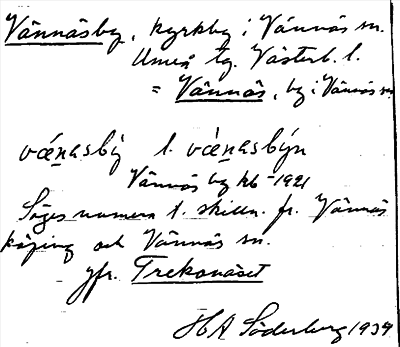 Vännäsby, kyrkby i Vännäs sn.
Umeå tg. Västerb. l.
= Vännäs, by i Vännäs sn
vä́nasbỳ l. vä́nasbýn
Vännäs by kb -1921
Säges numera t. skilln. fr. Vännäs
köping och Vännäs sn.
jfr. Trekonäset
HA Söderberg 1934